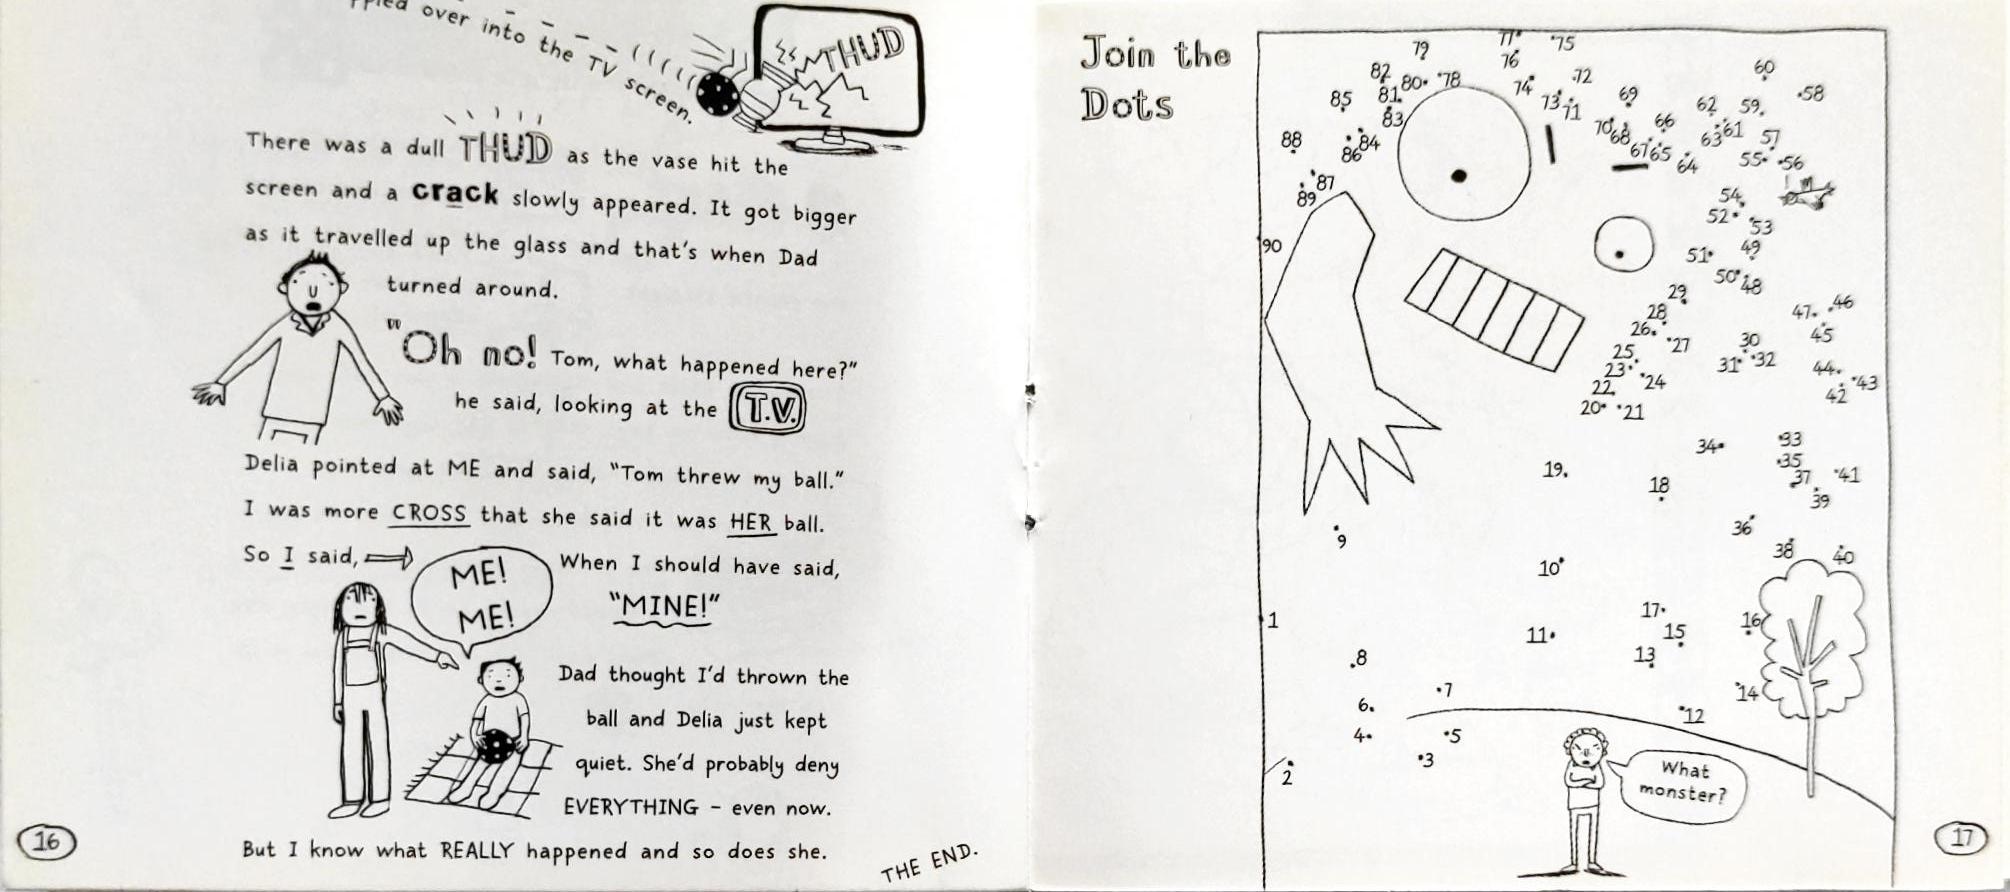 over into the TV screen.
THUD
There was a dull THUD as the vase hit the
screen and a crack slowly appeared. It got bigger
as it travelled up the glass and that's when Dad
turned around.
"Oh no! Tom, what happened here?"
he said, looking at the T.V.
Delia pointed at ME and said, "Tom threw my ball."
I was more CROSS that she said it was HER ball.
So I said,
ME!
ME!
When I should have said,
"MINE!"
Dad thought I'd thrown the
ball and Delia just kept
quiet. She'd probably deny
EVERYTHING - even now.
But I know what REALLY happened and so does she.
THE END.
16
Join the
Dots
77 75
79 76 60
82 80 78 74 72 58
85 81 73 71 69 62 59
83 70 68 66 63 61 57
88 86 84 67 65 64 55 56
87
89 54
52 53
90 51 49
50 48
29
28 47 46
26 27 45
25 30
23 24 31 32 44 43
22 42
20 21
34 33
19 35 41
18 37
39
36
9 38 40
10
1 17 16
11 15
8 13
7 14
6 12
4 5
3
2
What
monster?
17